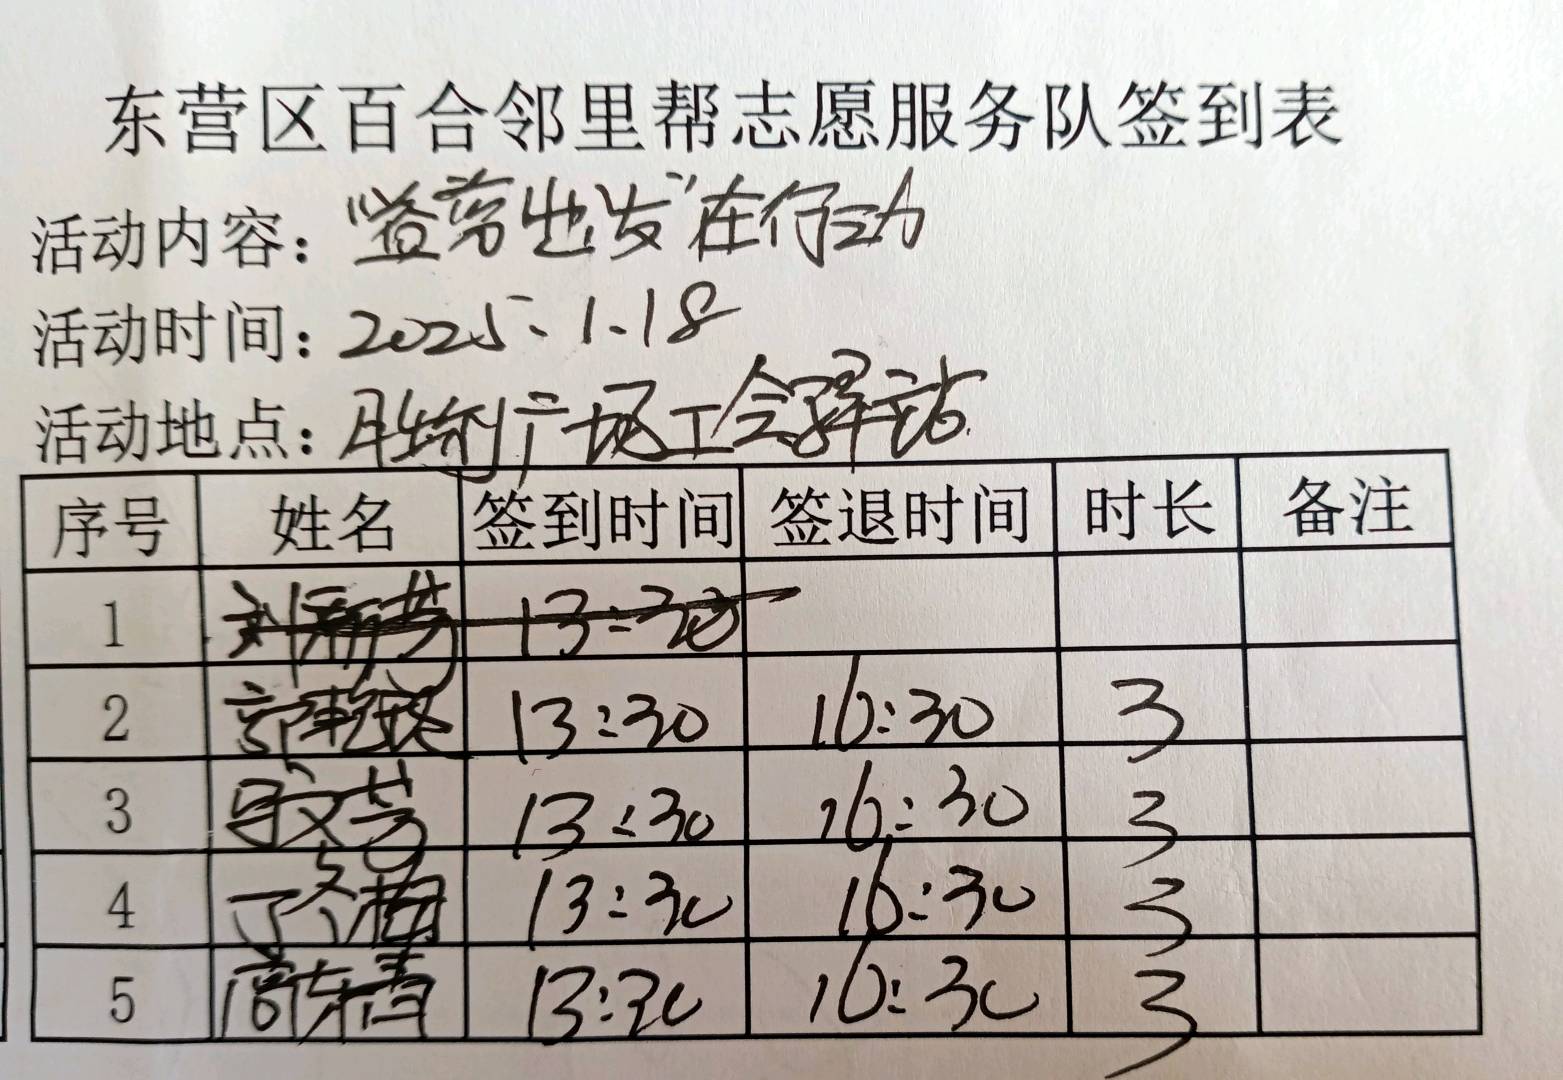 东营区百合邻里帮志愿服务队签到表
活动内容：“益剪出发”在行动
活动时间：2025.1.18
活动地点：胜利广场工会驿站
序号 姓名 签到时间 签退时间 时长 备注
1 13:30
2 13:30 16:30 3
3 13:30 16:30 3
4 丁冬梅 13:30 16:30 3
5 13:30 16:30 3